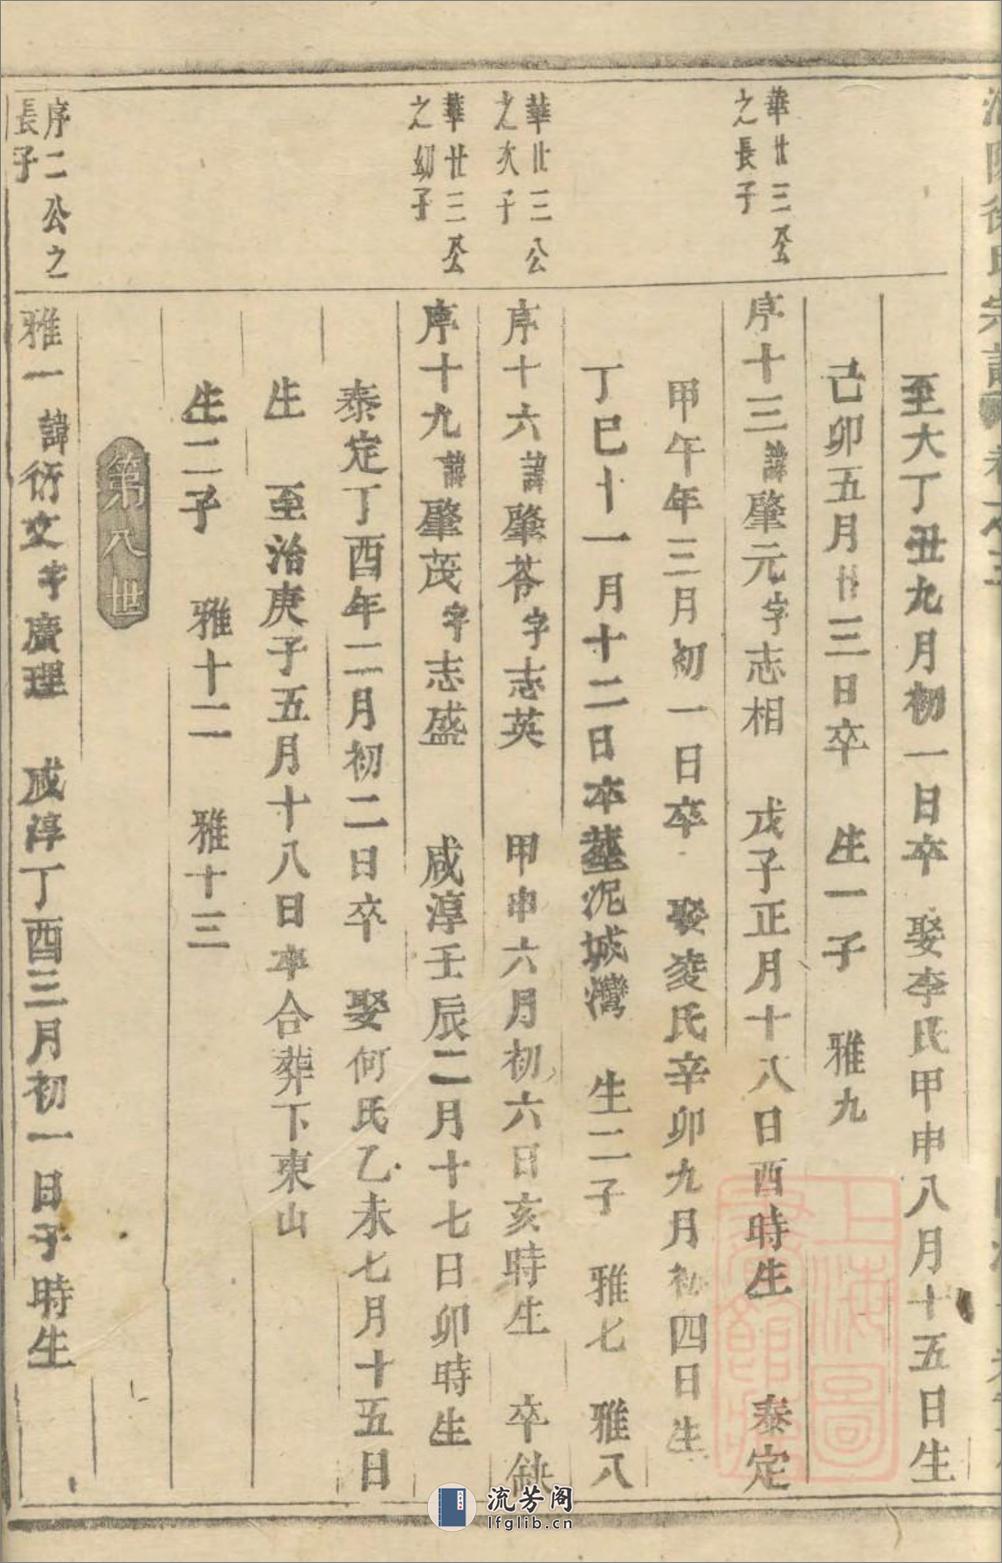 至大丁丑九月初一日卒　娶李氏甲申八月十五日生
己卯五月廿三日卒　生一子　雅九
華廿三公
之長子
序十三諱肇元字志相　戊子正月十八日酉時生　泰定
甲午年三月初一日卒　娶凌氏辛卯九月初四日生
丁巳十一月十二日卒墓泥城灣　生二子　雅七　雅八
華廿三公
之次子
序十六諱肇苓字志英　甲申六月初六日亥時生　卒缺
華廿三公
之幼子
序十九諱肇茂字志盛　咸淳壬辰二月十七日卯時生
泰定丁酉年二月初二日卒　娶何氏乙未七月十五日
生　至治庚子五月十八日卒合葬下東山
生二子　雅十二　雅十三
第八世
序二公之
長子
雅一諱衍文字廣理　咸淳丁酉三月初一日子時生
上海圖
書館藏
流芳阁
lfglib.cn